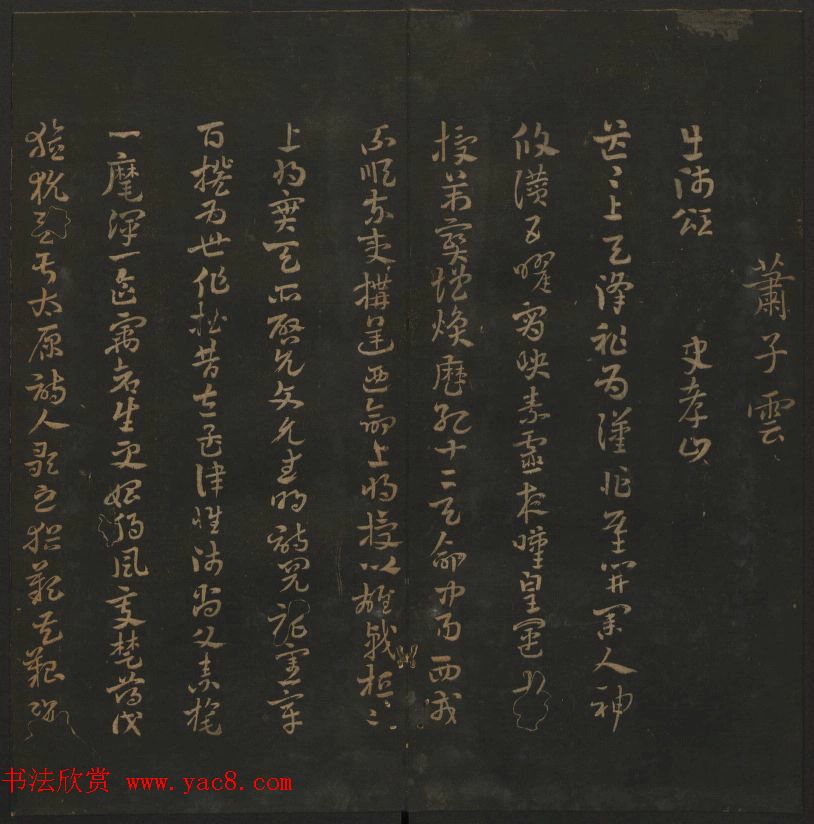 蕭子雲
出師頌 史孝山
茫〻上天降祚為漢作基開業人神
攸讚五曜宵映素靈夜嘆皇運來
授萬寶增煥歷紀十二天命中易西戎
不順東夷構逆廼命上將授以雄戟桓〻
上將實天所啟允文允武明詩閱禮憲章
百揆為世作楷昔在孟津惟師尚父素旄
一麾渾一區寓蒼生更始朔風變楚薄伐
獫狁至于太原詩人歌之猶歎其艱況
书法欣赏 www.yac8.com